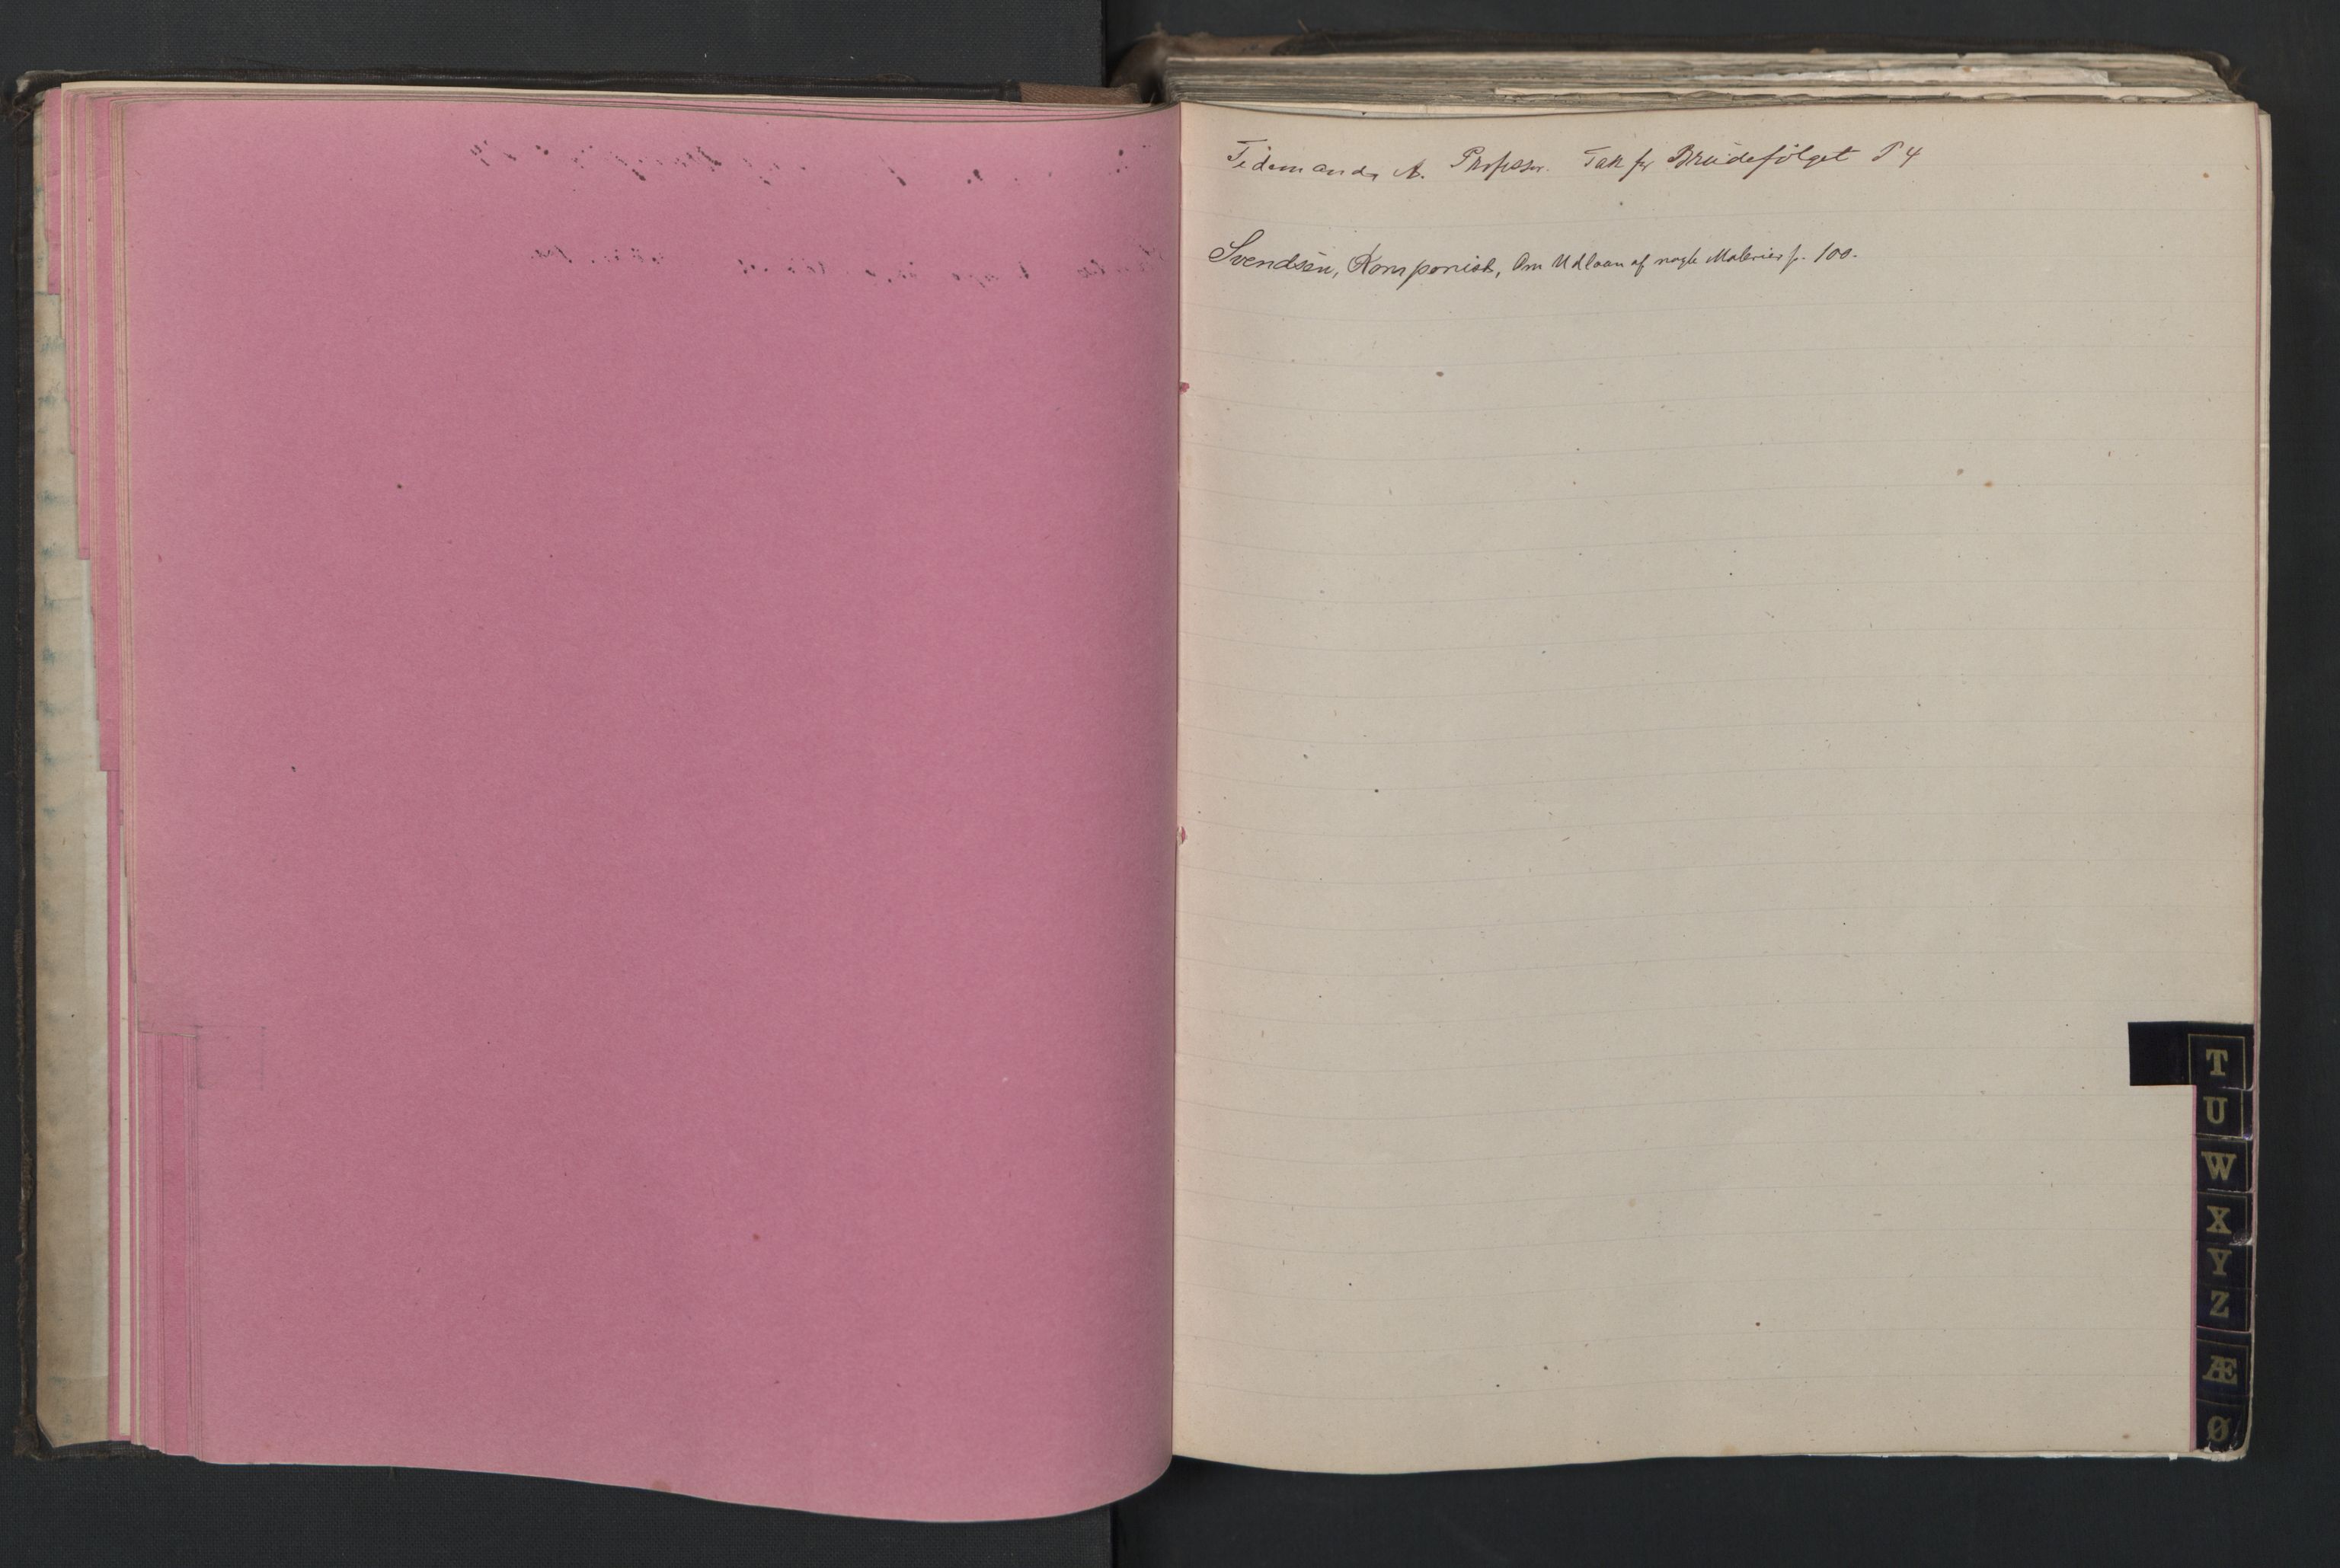 Tidemand, A. Professor. Tak for Brudefølget P 4
Svendsen, Komponist, Om Udlaan af nogle Malerier p. 100.
T
U
W
X
Y
Z
Æ
Ø